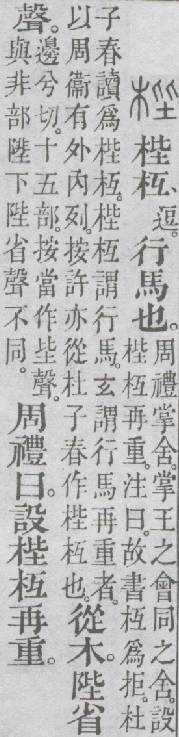 梐 梐枑、逗。行馬也。周禮掌舍。掌王之會同之舍。設
梐枑再重。注曰。故書枑爲拒。杜
子春讀爲梐枑。梐枑謂行馬。玄謂行馬再重者。
以周衞有外內列。按許亦從杜子春作梐枑也。從木。陛省
聲。邊兮切。十五部。按當作坒聲。
與非部陛下陛省聲不同。周禮曰。設梐枑再重。